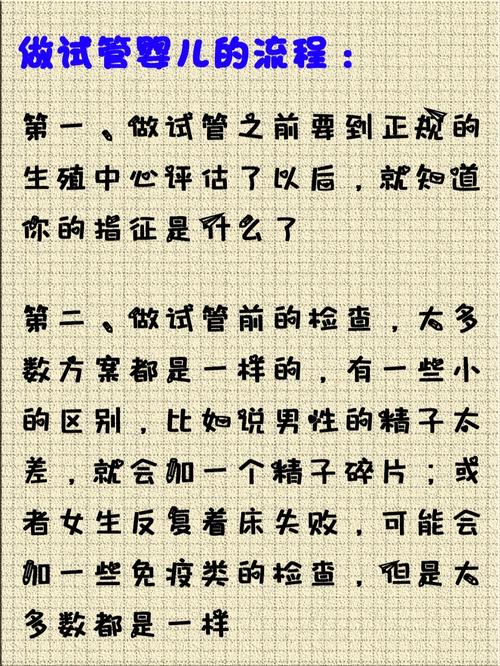 做试管婴儿的流程：
第一、做试管之前要到正规的
生殖中心评估了以后，就知道
你的指征是什么了
第二、做试管前的检查，大多
数方案都是一样的，有一些小
的区别，比如说男性的精子太
差，就会加一个精子碎片；或
者女生反复着床失败，可能会
加一些免疫类的检查，但是大
多数都是一样